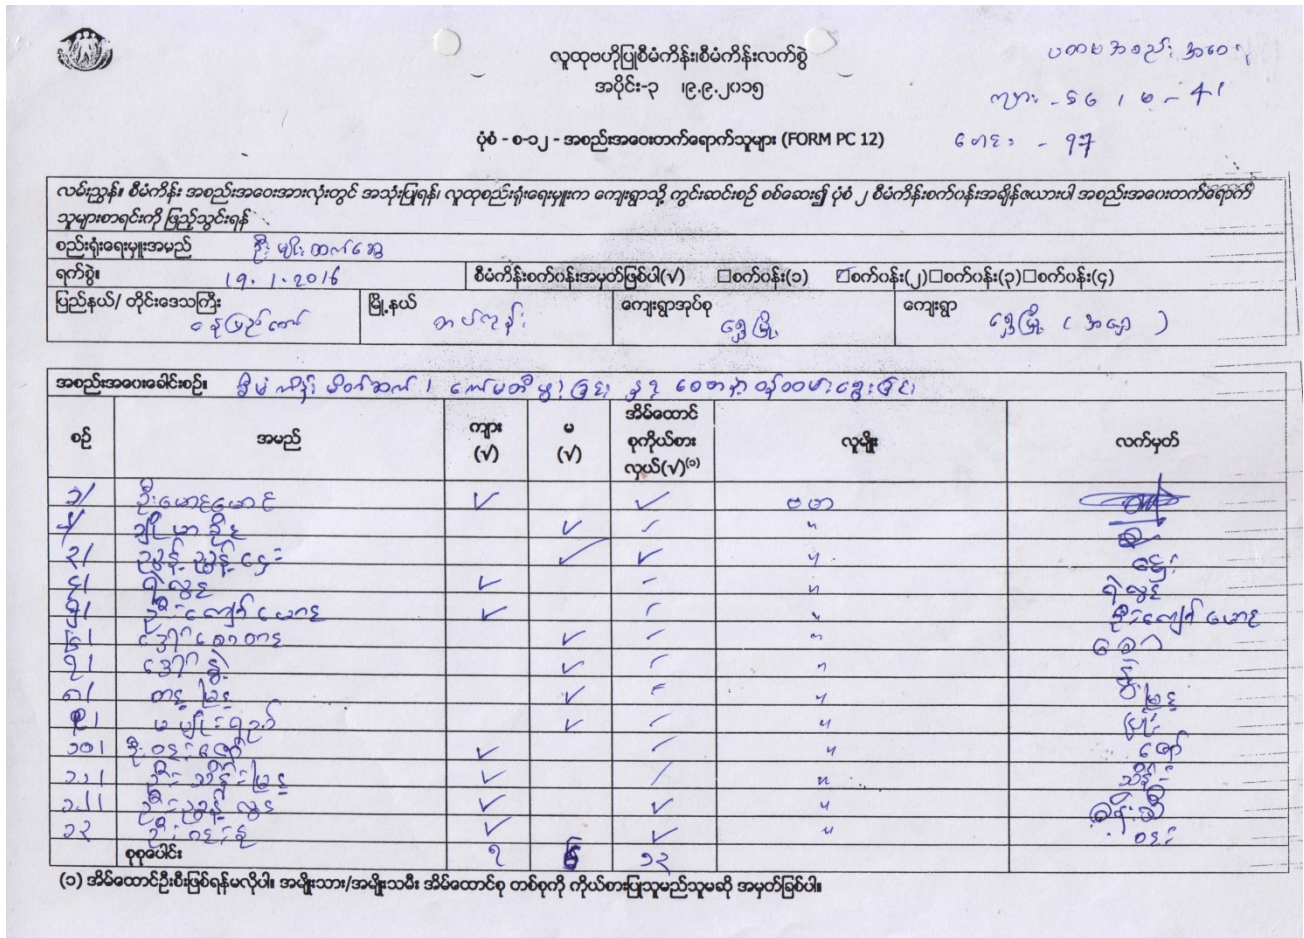 လူထုဗဟိုပြုစီမံကိန်း၊စီမံကိန်းလက်စွဲ
အပိုင်း-၃ ၊၉.၉.၂၀၁၅
ပထမအစည်းအဝေး
ကျား - 56 ၊ မ - 41
ပုံစံ - စ-၁၂ - အစည်းအဝေးတက်ရောက်သူများ (FORM PC 12)
ပေါင်း - 97
လမ်းညွှန်။ စီမံကိန်း အစည်းအဝေးအားလုံးတွင် အသုံးပြုရန်၊ လူထုစည်းရုံးရေးမှူးက ကျေးရွာသို့ ကွင်းဆင်းစဉ် စစ်ဆေး၍ ပုံစံ ၂ စီမံကိန်းစက်ဝန်းအချိန်ဇယားပါ အစည်းအဝေးတက်ရောက်
သူများစာရင်းကို ဖြည့်သွင်းရန်
စည်းရုံးရေးမှူးအမည် ဦးမျိုးထက်ဆွေ
ရက်စွဲ။ 19.1.2016 စီမံကိန်းစက်ဝန်းအမှတ်ဖြစ်ပါ(√) □စက်ဝန်း(၁) ☑စက်ဝန်း(၂)□စက်ဝန်း(၃)□စက်ဝန်း(၄)
ပြည်နယ်/ တိုင်းဒေသကြီး နေပြည်တော် မြို့နယ် တပ်ကုန်း ကျေးရွာအုပ်စု ရွှေမြို့ ကျေးရွာ ရွှေမြို့ (အရှေ့)
အစည်းအဝေးခေါင်းစဉ်။ စီမံကိန်း မိတ်ဆက်၊ ကော်မတီဖွဲ့ခြင်း နှင့် စေတနာ့ဝန်ထမ်းရွေးခြင်း
စဉ် အမည် ကျား (√) မ (√) အိမ်ထောင်စုကိုယ်စားလှယ်(√)⁽¹⁾ လူမျိုး လက်မှတ်
၁/ ဦးမောင်မောင် ✓ ✓ ဗမာ
၂/ ✓ ✓ "
၃/ ညွန့်ညွန့်ဌေး ✓ ✓ " ဌေး
၄/ ရဲလွင် ✓ ✓ " ရဲလွင်
၅/ ဦးကျော်မောင် ✓ ✓ " ဦးကျော်မောင်
၆/ ✓ ✓ "
၇/ ဒေါ်နွဲ့ ✓ ✓ " နွဲ့
၈/ တင့်မြင့် ✓ ✓ " မြင့်
၉/ ✓ ✓ "
၁၀/ ဦးဝင်းဇော် ✓ ✓ " ဇော်
၁၁/ ဦးသိန်းမြင့် ✓ ✓ " သိန်း
၁၂/ ဦးညွန့်လွင် ✓ ✓ "
၁၃ ✓ ✓ "
စုစုပေါင်း ၇ ၆ ၁၃
(၁) အိမ်ထောင်ဦးစီးဖြစ်ရန်မလိုပါ။ အမျိုးသား/အမျိုးသမီး အိမ်ထောင်စု တစ်စုကို ကိုယ်စားပြုသူမည်သူမဆို အမှတ်ခြစ်ပါ။